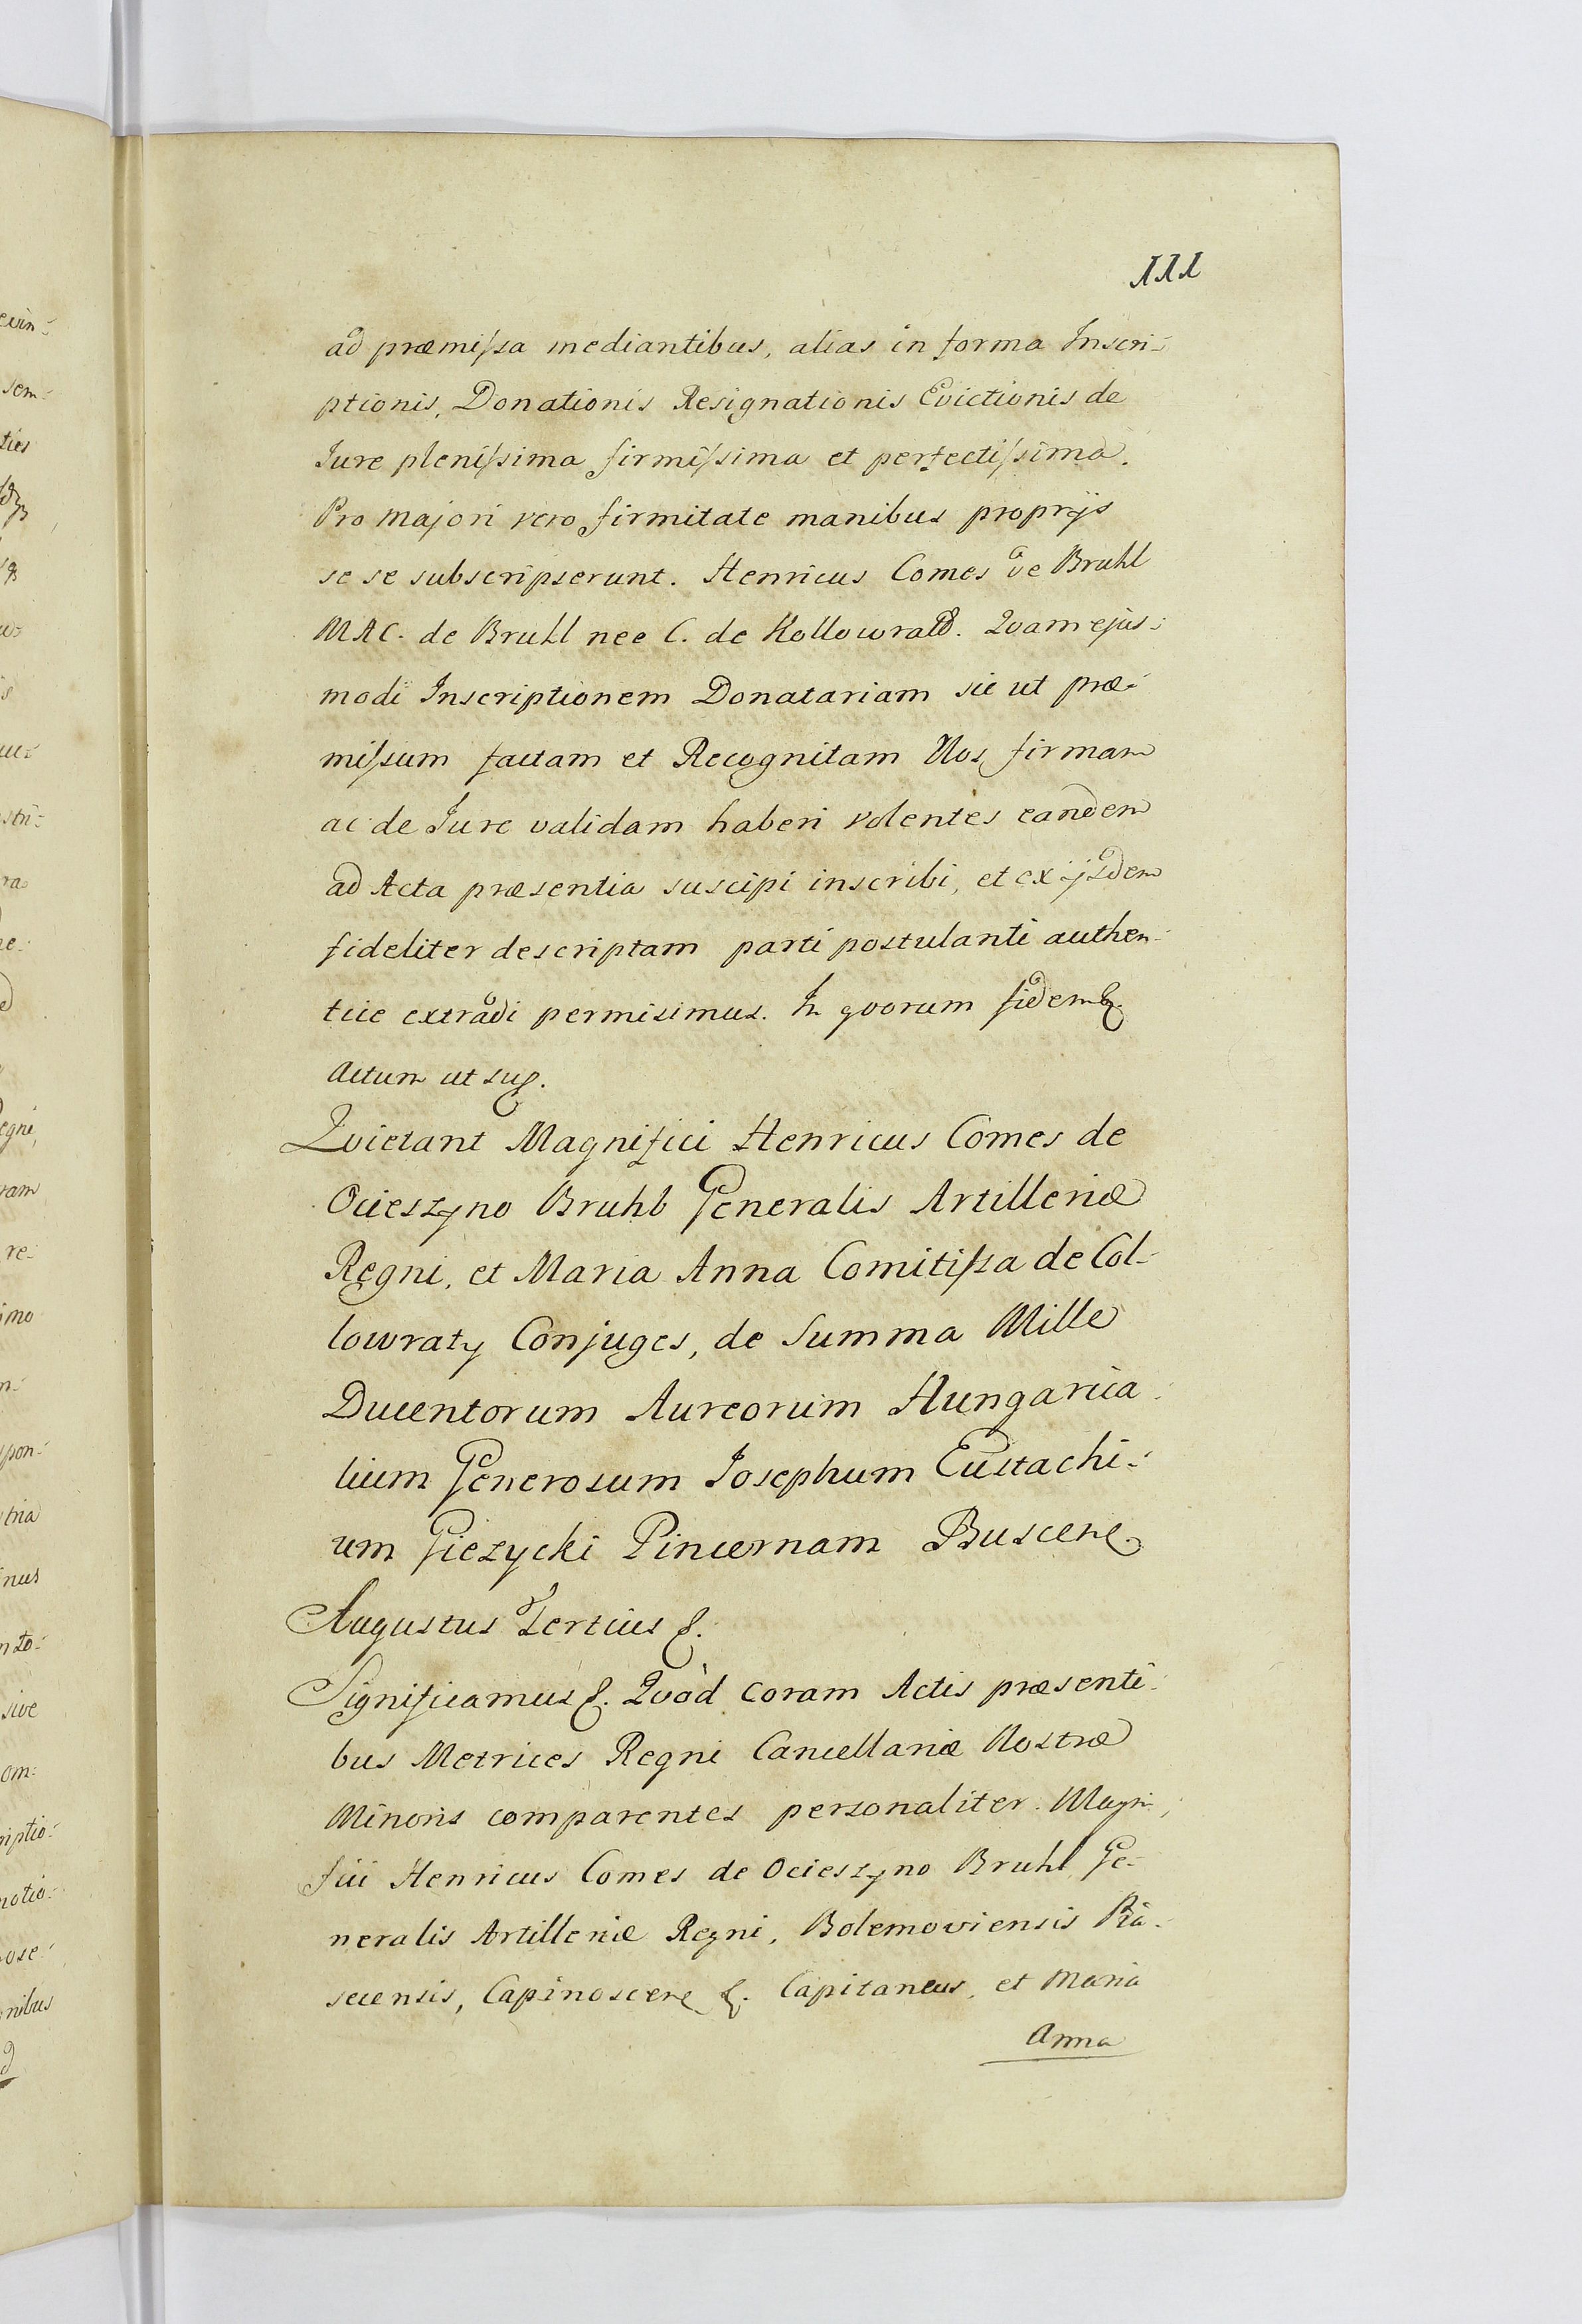 111
ad præmissa mediantibus, alias in forma Inscri-
ptionis, Donationis Resignationis Evictionis de
Jure plenissima firmissima et perfectissima.
Pro majori vero firmitate manibus proprijs
se se subscripserunt. Henricus Comes de Bruhl
MAC. de Bruhl nee C. de Kollowratd. Qvam ejus-
modi Inscriptionem Donatariam sic ut præ-
missum factam et Recognitam Nos firmam
ac de Jure validam haberi volentes eandem
ad Acta præsentia suscipi inscribi, et ex ijsdem
fideliter descriptam parti postulanti authen-
tice extradi permisimus. In qvorum fidem &
Actum ut sup.
Qvietant Magnifici Henricus Comes de
Ocieszyno Bruhl Generalis Artilleriæ
Regni, et Maria Anna Comitissa de Col-
lowraty Conjuges, de Summa Mille
Ducentorum Aureorum Hungarica-
lium Generosum Josephum Eustachi-
um Giezycki Pincernam Buscene.
Augustus Tertius &.
Significamus &. Qvòd coram Actis præsenti-
bus Metrices Regni Cancellariæ Nostræ
Minoris comparentes personaliter Magni-
fici Henricus Comes de Ocieszyno Bruhl Ge-
neralis Artilleriæ Regni, Bolemoviensis Pia-
secensis, Capinoscene &. Capitaneus, et Maria
Anna